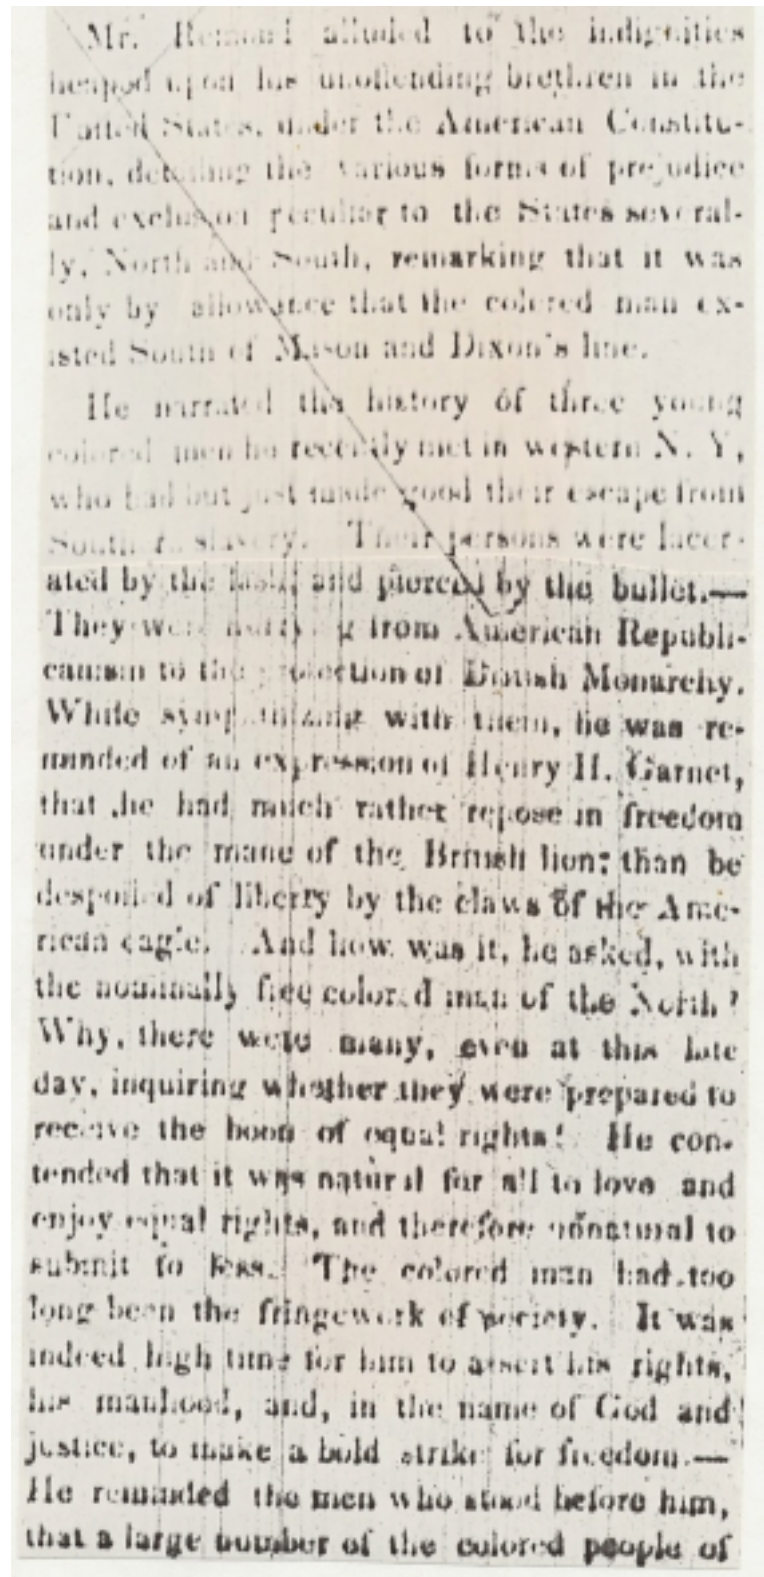 Mr. Remond alluded to the indignities
heaped upon his unoffending brethren in the
United States, under the American Constitu-
tion, detailing the various forms of prejudice
and exclusion peculiar to the States several-
ly, North and South, remarking that it was
only by allowance that the colored man ex-
isted South of Mason and Dixon's line.
He narrated the history of three young
colored men he recently met in western N. Y,
who had but just made good their escape from
Southern slavery. Their persons were lacer-
ated by the lash, and pierced by the bullet.—
They were hurrying from American Republi-
canism to the protection of British Monarchy.
While sympathizing with them, he was re-
minded of an expression of Henry H. Garnet,
that he had much rather repose in freedom
under the mane of the British lion; than be
despoiled of liberty by the claws of the Ame-
rican eagle. And how was it, he asked, with
the nominally free colored man of the North?
Why, there were many, even at this late
day, inquiring whether they were prepared to
receive the boon of equal rights! He con-
tended that it was natural for all to love and
enjoy equal rights, and therefore unnatural to
submit to less. The colored man had too
long been the fringework of society. It was
indeed high time for him to assert his rights,
his manhood, and, in the name of God and
justice, to make a bold strike for freedom.—
He reminded the men who stood before him,
that a large number of the colored people of